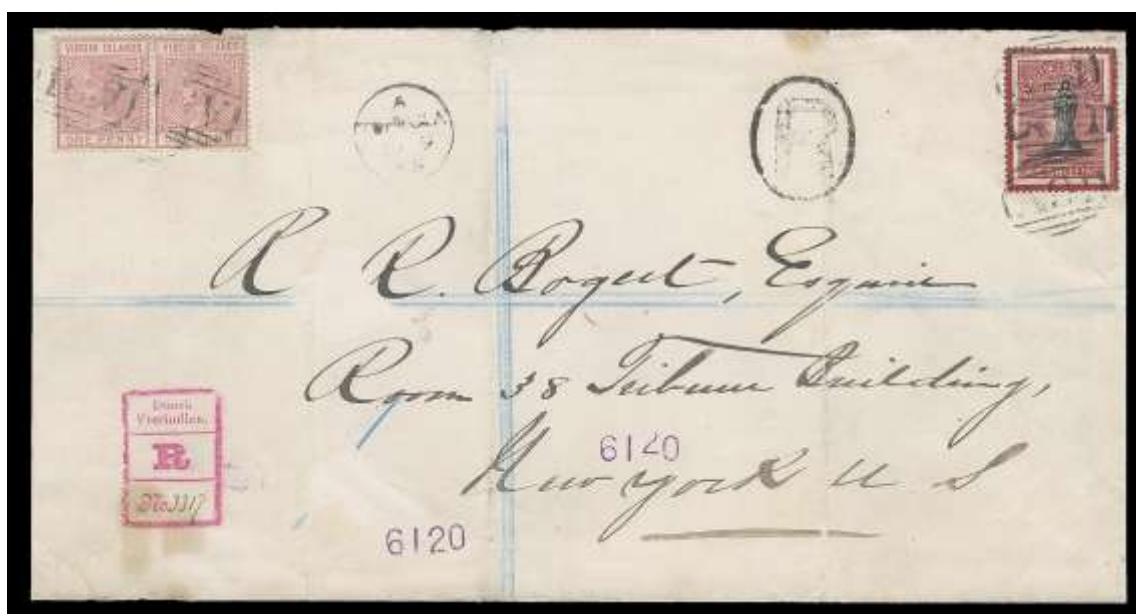 VIRGIN ISLANDS VIRGIN ISLANDS
ONE PENNY
A
R
R R. Bogert, Esquire
Room 38 Tribune Building,
New York U S
6140
6120
Dansk
Vestindien.
R
No 3317